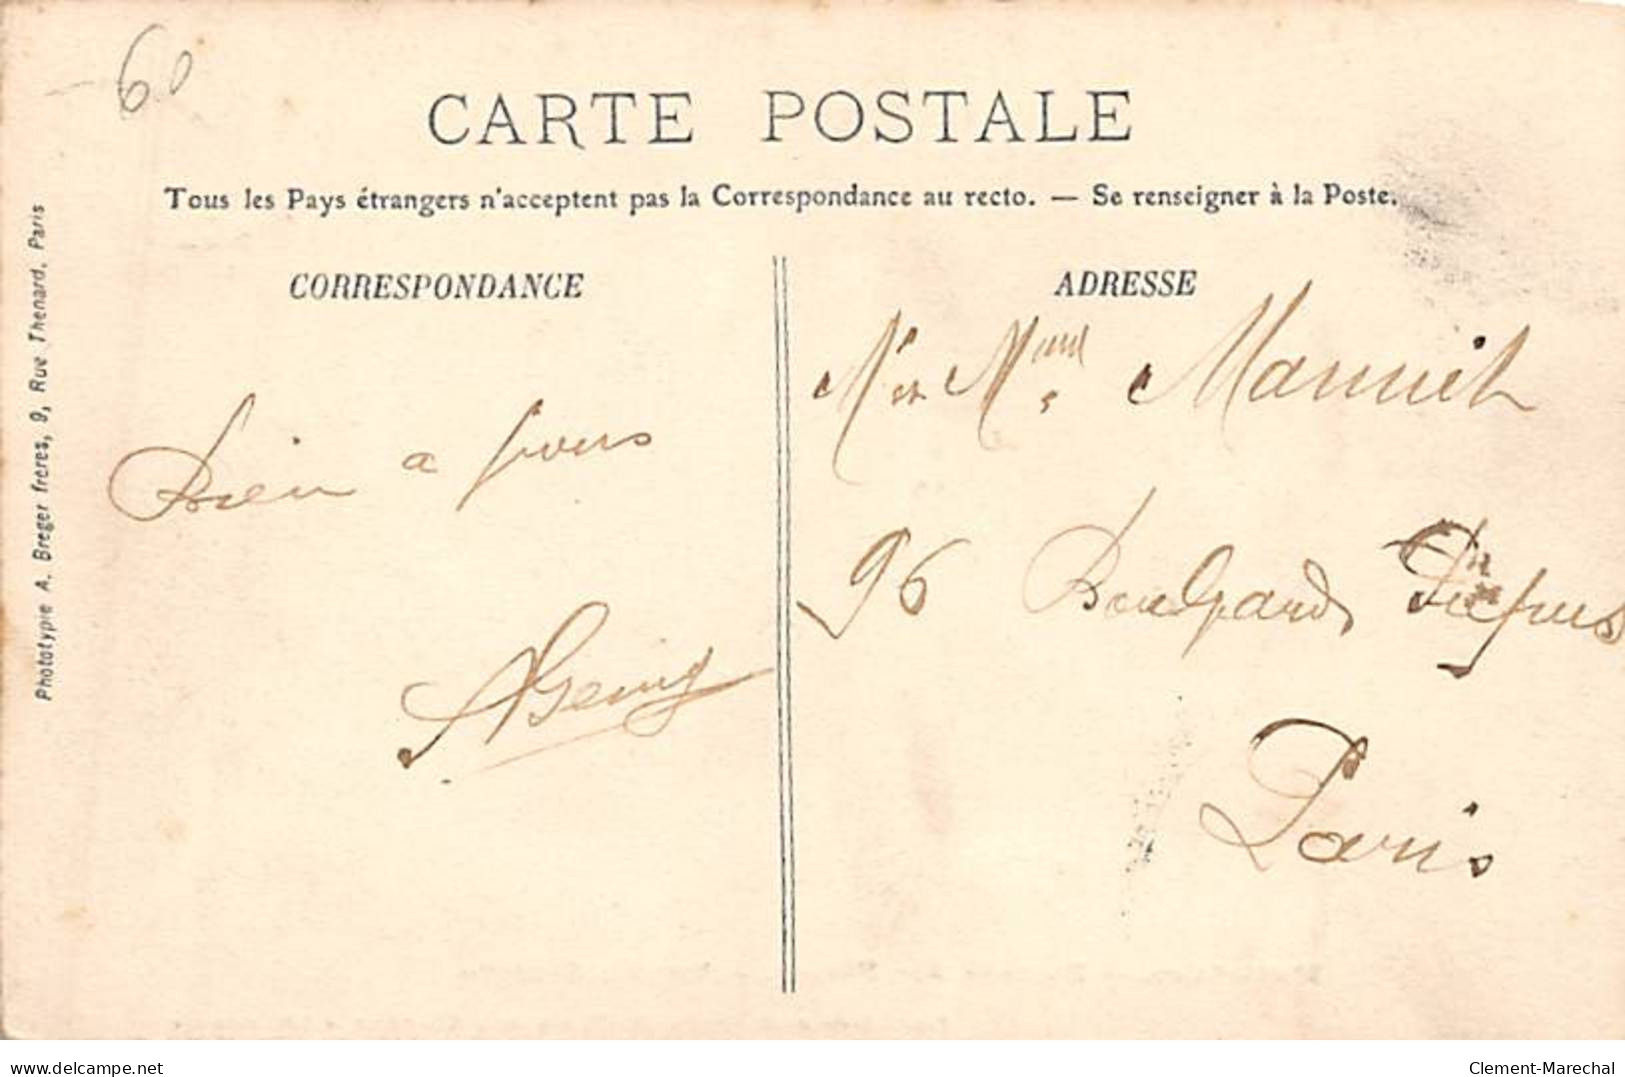 60
CARTE POSTALE
Tous les Pays étrangers n'acceptent pas la Correspondance au recto. — Se renseigner à la Poste.
Phototypie A. Breger frères, 9, Rue Thenard, Paris
CORRESPONDANCE
Bien a vous
ADRESSE
Mr et Mme
96 Boulevard
Paris
delcampe.net
Clement-Marechal